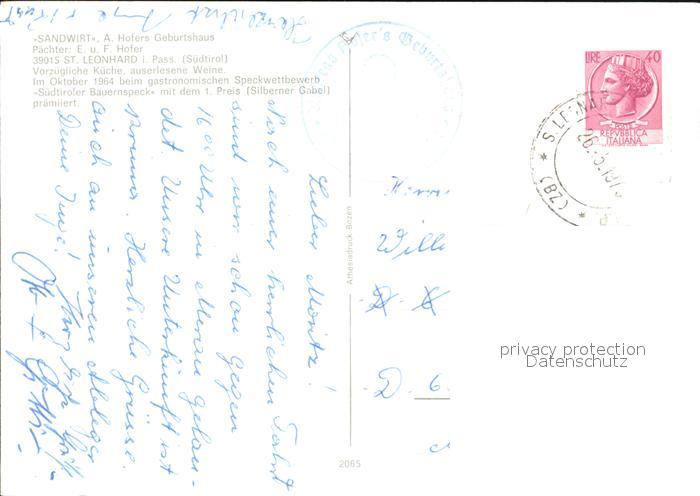 »SANDWIRT«, A. Hofers Geburtshaus
Pächter: E. u. F. Hofer
39015 ST. LEONHARD i. Pass. (Südtirol)
Vorzügliche Küche, auserlesene Weine.
Im Oktober 1964 beim gastronomischen Speckwettbewerb
»Südtiroler Bauernspeck« mit dem 1. Preis (Silberner Gabel)
prämiiert.
Lieber Moritz!
Nach einer herrlichen Fahrt
sind wir schon gegen
16oo Uhr in Meran gelan-
det. Unsere Unterkunft ist
prima. Herzliche Grüsse
auch an unseren Ableger
Deine Inge!
Hofer's Geburtshaus
Athesiadruck-Bozen
2065
LIRE 40
POSTE
REPVBBLICA
ITALIANA
Herrn
Willi
D - 6
privacy protection
Datenschutz